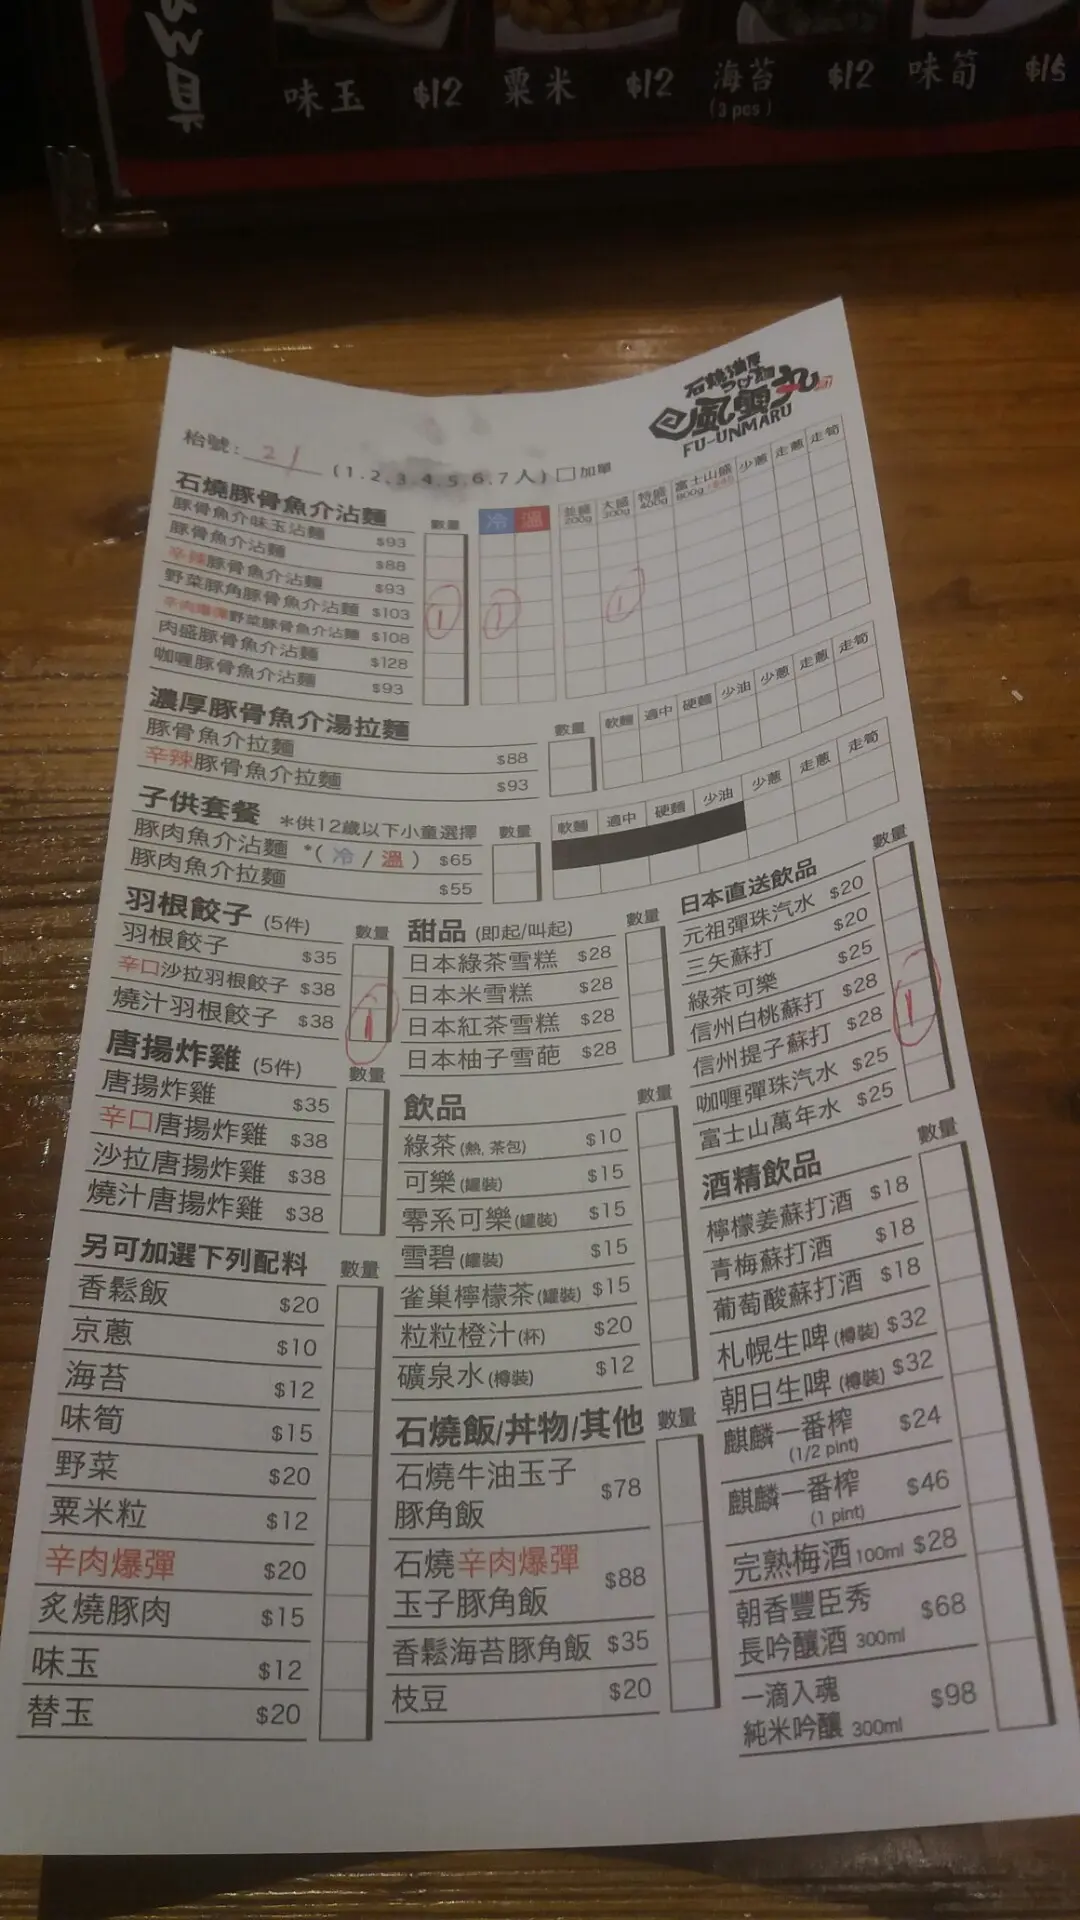 味玉 $12 粟米 $12 海苔 $12 味筍 $15
(3 pcs)
石燒濃厚
つけ麵
風雲丸
FU-UNMARU
枱號: 21 (1.2.3.4.5.6.7人) □加單
石燒豚骨魚介沾麵 數量 冷 溫 並盛200g 大盛300g 特盛400g 富士山盛800g 少蔥 走蔥 走筍
豚骨魚介味玉沾麵 $93
豚骨魚介沾麵 $88
辛辣豚骨魚介沾麵 $93
野菜豚角豚骨魚介沾麵 $103 1 1 1
辛肉爆彈野菜豚骨魚介沾麵 $108
肉盛豚骨魚介沾麵 $128
咖喱豚骨魚介沾麵 $93
濃厚豚骨魚介湯拉麵 數量 軟麵 適中 硬麵 少油 少蔥 走蔥 走筍
豚骨魚介拉麵 $88
辛辣豚骨魚介拉麵 $93
子供套餐 *供12歲以下小童選擇 數量 軟麵 適中 硬麵 少油 少蔥 走蔥 走筍
豚肉魚介沾麵 *(冷/溫) $65
豚肉魚介拉麵 $55
羽根餃子 (5件) 數量
羽根餃子 $35
辛口沙拉羽根餃子 $38
燒汁羽根餃子 $38 1
唐揚炸雞 (5件) 數量
唐揚炸雞 $35
辛口唐揚炸雞 $38
沙拉唐揚炸雞 $38
燒汁唐揚炸雞 $38
另可加選下列配料 數量
香鬆飯 $20
京蔥 $10
海苔 $12
味筍 $15
野菜 $20
粟米粒 $12
辛肉爆彈 $20
炙燒豚肉 $15
味玉 $12
替玉 $20
甜品 (即起/叫起) 數量
日本綠茶雪糕 $28
日本米雪糕 $28
日本紅茶雪糕 $28
日本柚子雪葩 $28
飲品 數量
綠茶(熱, 茶包) $10
可樂(罐裝) $15
零系可樂(罐裝) $15
雪碧(罐裝) $15
雀巢檸檬茶(罐裝) $15
粒粒橙汁(杯) $20
礦泉水(樽裝) $12
石燒飯/丼物/其他 數量
石燒牛油玉子
豚角飯 $78
石燒辛肉爆彈
玉子豚角飯 $88
香鬆海苔豚角飯 $35
枝豆 $20
日本直送飲品 數量
元祖彈珠汽水 $20
三矢蘇打 $20
綠茶可樂 $25
信州白桃蘇打 $28
信州提子蘇打 $28 1
咖喱彈珠汽水 $25
富士山萬年水 $25
酒精飲品 數量
檸檬姜蘇打酒 $18
青梅蘇打酒 $18
葡萄酸蘇打酒 $18
札幌生啤(樽裝) $32
朝日生啤(樽裝) $32
麒麟一番榨 $24
(1/2 pint)
麒麟一番榨 $46
(1 pint)
完熟梅酒 100ml $28
朝香豐臣秀
長吟釀酒 300ml $68
一滴入魂
純米吟釀 300ml $98